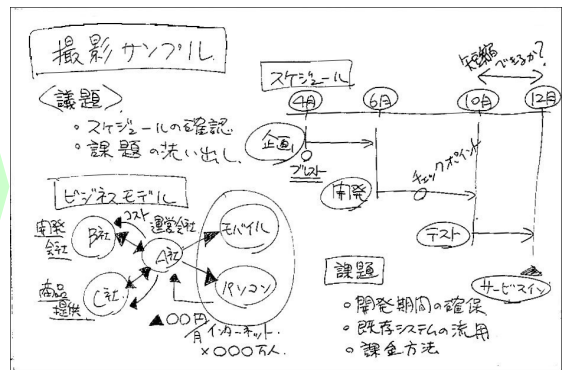 撮影サンプル
<議題>
・スケジュールの確認
・課題の洗い出し
ビジネスモデル
開発会社
B社
コスト
運営会社
A社
モバイル
パソコン
商品提供
C社
▲〇〇円/月
インターネット
×〇〇〇万人
スケジュール
短縮できるか?
4月
6月
10月
12月
企画
ブレスト
開発
チェックポイント
テスト
サービスイン
課題
○開発期間の確保
○既存システムの流用
○課金方法